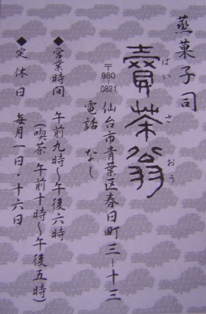 蒸菓子司
賣茶翁
ばいさおう
〒980
0821
仙台市青葉区春日町三-十三
電話 なし
◆営業時間 午前九時〜午後六時
(喫茶 午前十時〜午後五時)
◆定休日 毎月一日・十六日